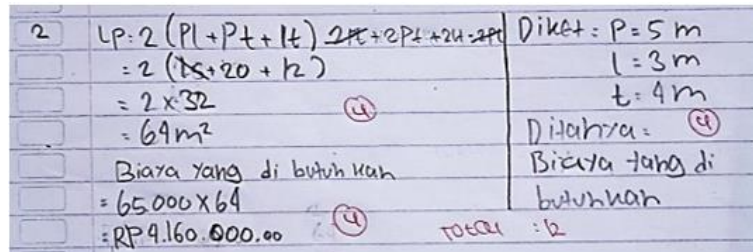 2
LP: 2 (Pl + Pt + lt) 2Pl + 2Pt + 2lt - 2Pl
= 2 (15 + 20 + 12)
= 2 x 32
= 64 m²
4
Biaya yang di butuhkan
= 65.000 x 64
= RP 4.160.000.00
4
Diket : P = 5 m
l = 3 m
t = 4 m
Ditanya : 4
Biaya yang di
butuhkan
TOTAL : 12